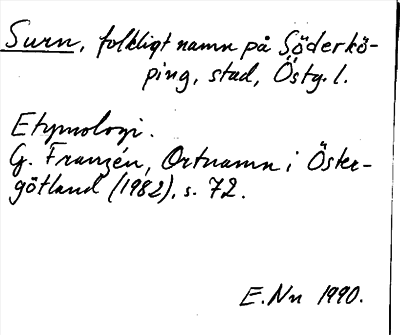 Surn, folkligt namn på Söderkö-
ping, stad, Östg. l.
Etymologi.
G. Franzén, Ortnamn i Öster-
götland (1982), s. 72.
E. Nn 1990.